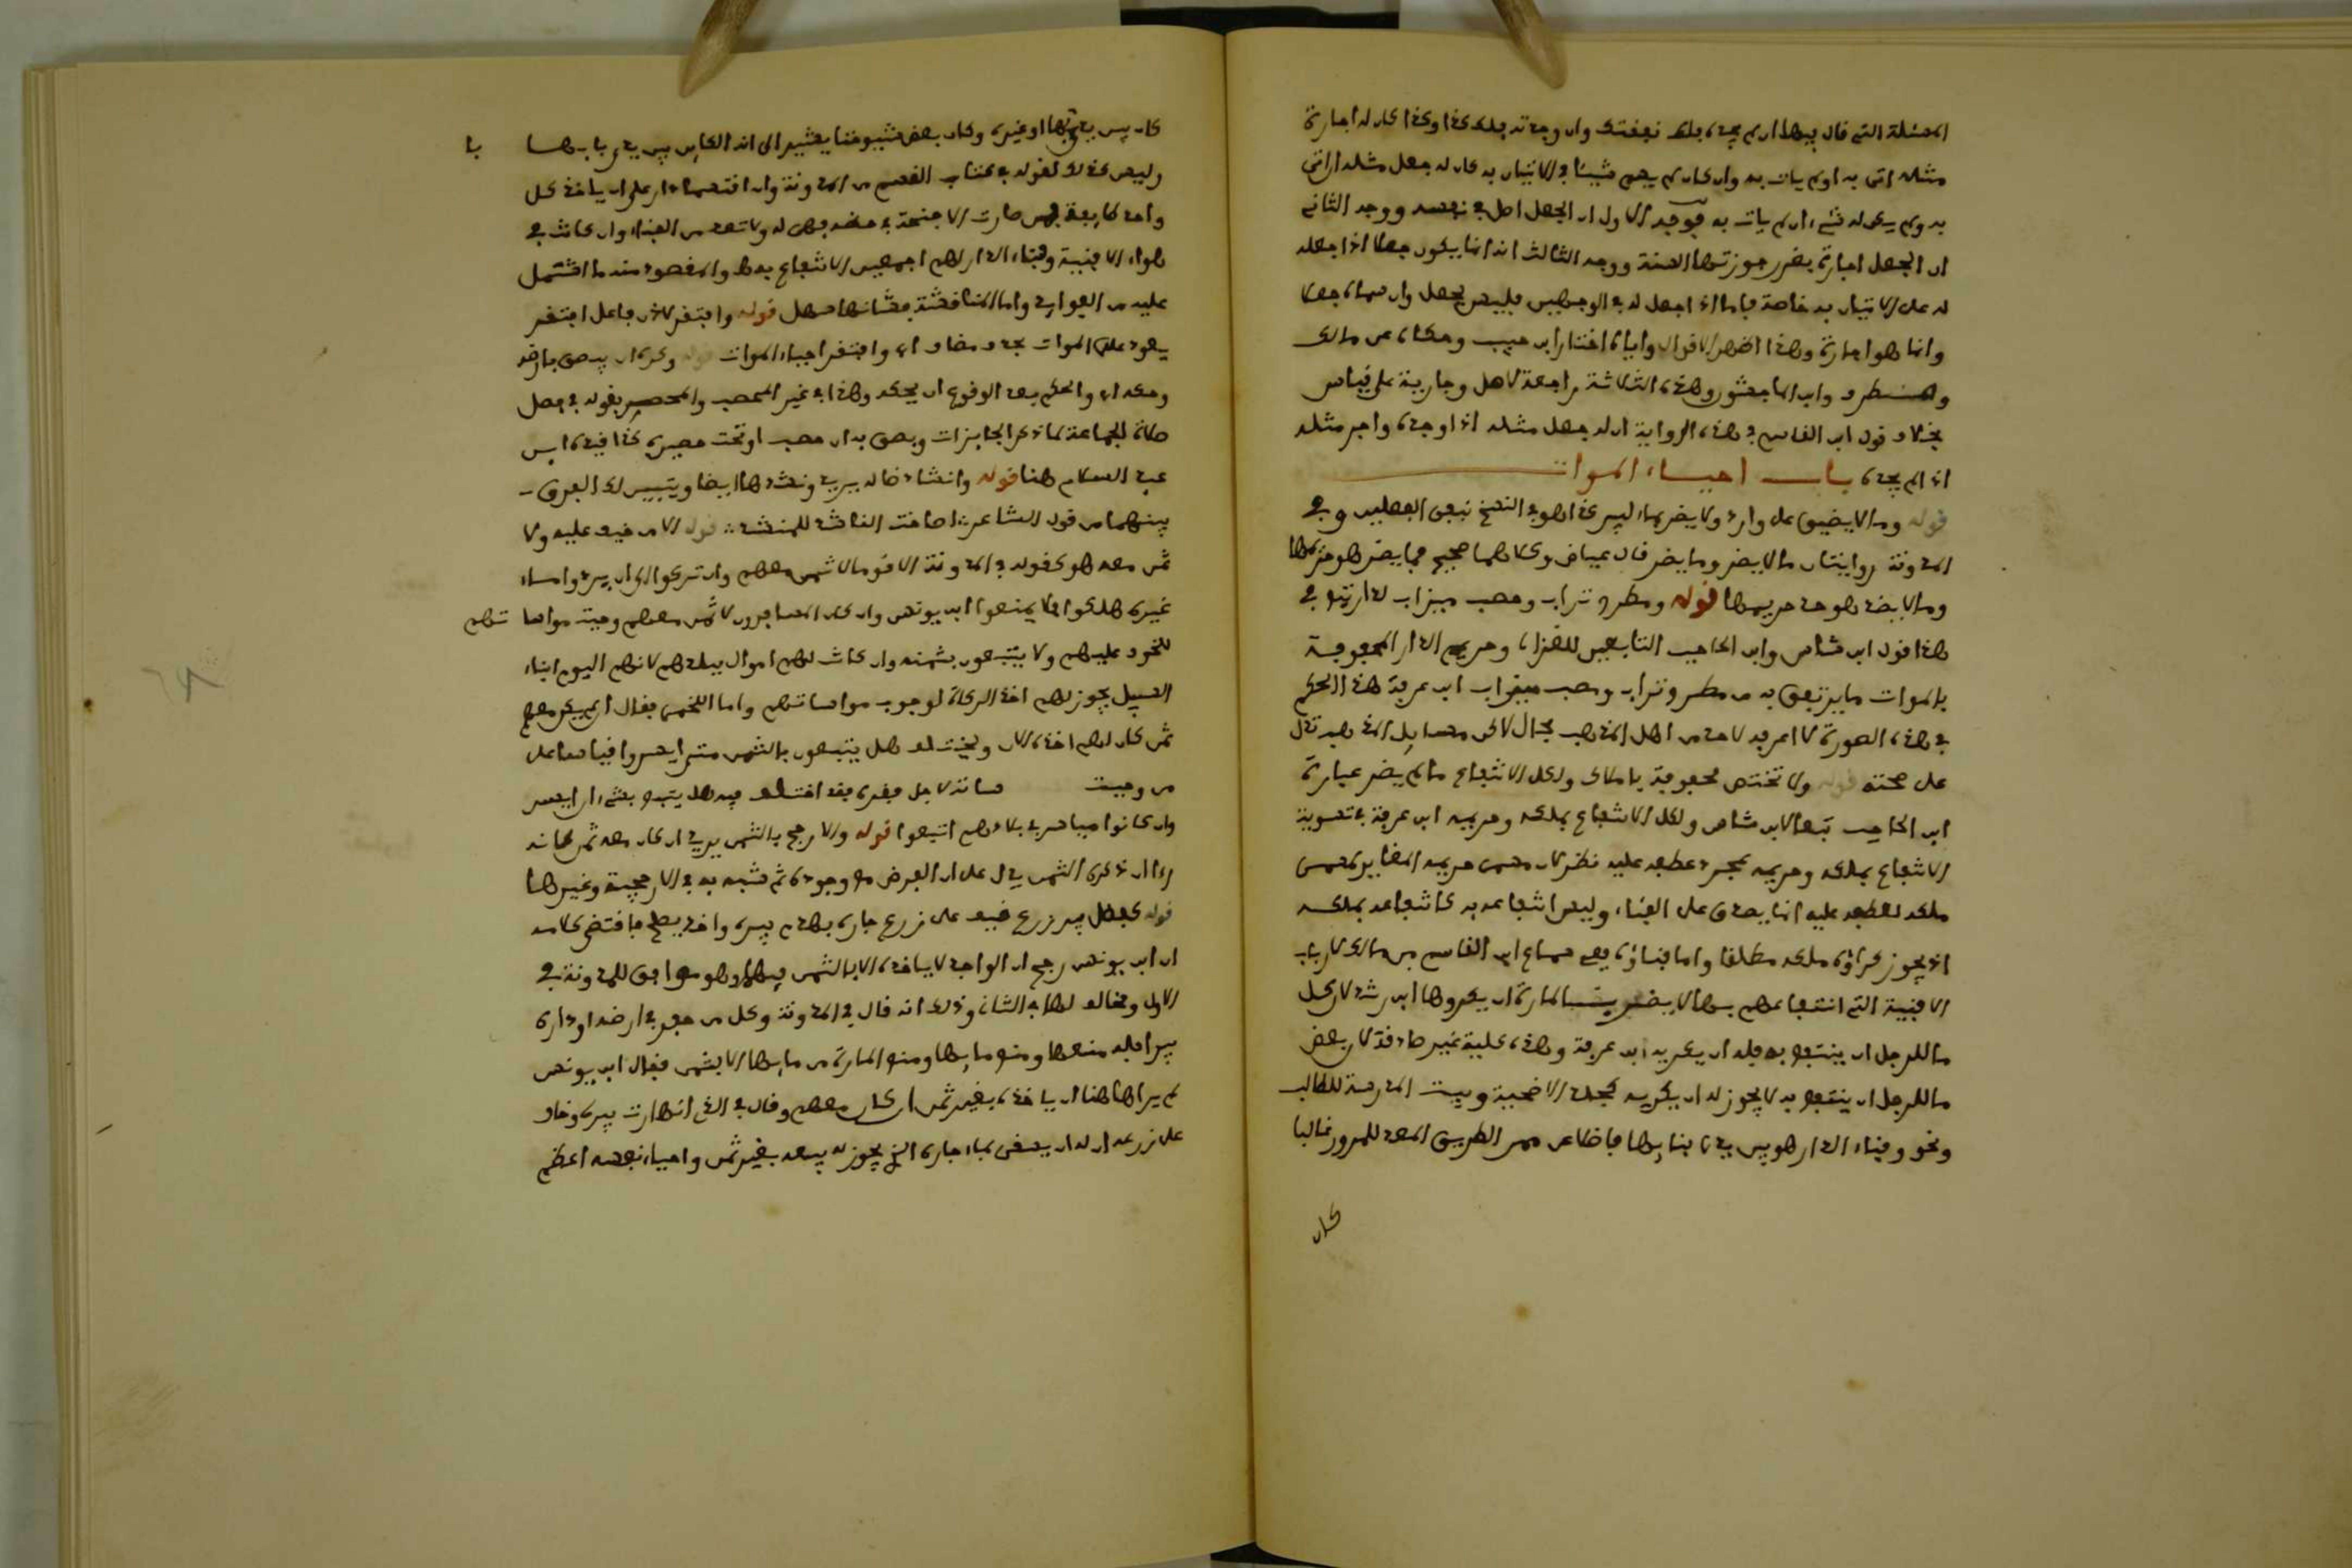 المسئلة التي قال فيها ان لم يجده فلك نفقتك وان وجدته فلك كذا وكذا كان له اجارة
مثله اتى به او لم يات به وان كان لم يسم شيئا في الاتيان به كان له جعل مثله ان اتى
به ولم يكن له شيء ان لم يات به فوجه الاول ان الجعل اصل في نفسه ووجه الثاني
ان الجعل اجارة بغرر جوزتها السنة ووجه الثالث انه انما يكون جعلا اذا جعله
له على الاتيان به خاصة فاما اذا جعل له في الوجهين فليس بجعل وان سماه جعلا
وانما هو اجارة وهذا اظهر الاقوال واياه اختار ابن حبيب وحكاه عن مالك
و وابن الماجشون وهذه الثلاثة راجعة لاصل وجارية على قياس
بخلاف قول ابن القاسم في هذه الرواية ان له جعل مثله اذا وجده واجر مثله
اذا لم يجده باب احياء الموات
قوله وما لا يضيق على وارد ولا يضر بماء لبير كذا هو في النسخ نفي الفعلين وفي
المدونة روايتان ما لا يضر وما يضر قال عياض وكلاهما صحيح فما يضر هو حريمها
وما لا يضر هو حد حريمها قوله ومطرح تراب ومصب ميزاب لدار تبع في
هذا قول ابن شاس وابن الحاجب التابعين للغزالي وحريم الدار المحفوفة
بالموات ما يرتفق به من مطرح تراب ومصب ميزاب ابن عرفة هذا الحكم
في هذه الصورة لا اعرفه لاحد من اهل المذهب بحال لاكن مسايل المذهب تدل
على صحته قوله ولا تختص محفوفة باملاك ولكل الانتفاع ما لم يضر عبارة
ابن الحاجب تبعا لابن شاس ولكل الانتفاع بملكه وحريمه ابن عرفة في تسوية
الانتفاع بملكه وحريمه بمجرد عطفه عليه نظر لان مسمى حريمه المغاير لمسمى
ملكه لعطفه عليه انما يصدق على الفناء وليس انتفاعه به كانتفاعه بملكه
اذ يجوز كراؤه ملكه مطلقا واما فناؤه ففي سماع ابن القاسم من مالك لارباب
الافنية التي انتفاعهم بها لا يضر بالمارة ان يكروها ابن رشد لان كل
ما للرجل ان ينتفع به فله ان يكريه ابن عرفة وهذه كلية غير صادقة لان بعض
ما للرجل ان ينتفع به لا يجوز له ان يكريه كجلد الاضحية وبيت المدرسة للطالب
ونحوه وفناء الدار هو بين يدي بنايها فاضلا عن ممر الطريق المعد للمرور غالبا
كان
كان بين يدي بابها او غيره وكان بعض شيوخنا يشير الى انه الكاين بين يدي بابها با
وليس كذلك لقوله في كتاب القسم من المدونة وان اقتسما دارا على ان ياخذ كل
واحد طايفة فمن صارت الاجنحة في حظه فهي له ولا تعد من الفناء وان كانت في
هواء الافنية وفناء الدار لهم اجمعين الانتفاع به والمقصود منه ما اشتمل
عليه من الفوايد واما المناقشة فشانها سهل قوله وافتقر لاذن فاعل افتقر
يعود على الموات بحذف مضاف اي وافتقر احياء الموات قوله
وحكه اي والحكم بعد الوقوع ان يحكه وهذا في غير المحصب والمحصر بقوله في فصل
صلاة الجماعة لما ذكر الجايزات وبصق به ان حصب او تحت حصيره كذا قيده ابن
عبد السلام هنا قوله وانشاد ضالة يريد ونشدها ايضا ويتبين لك الفرق
بينهما من قول الشاعر اصاخة الناشد للمنشد قوله الا من خيف عليه ولا
ثمن معه هو كقوله في المدونة الا قوما لا ثمن معهم وان تركوا الى ان يردوا ماء
غيره هلكوا فلا يمنعوا ابن يونس وان كان المسافرون لا ثمن معهم وجبت مواسا تهم
للخوف عليهم ولا يتبعون بثمنه وان كانت لهم اموال ببلدهم لانهم اليوم ابناء
السبيل يجوز لهم اخذ الزكاة لوجوب مواساتهم واما اللخمي فقال ان لم يكن معهم
ثمن كان لهم اخذه الان ويختلف هل يتبعون بالثمن متى ايسروا قياسا على
من وجبت ساته لاجل فقره فقد اختلف فيه هل يتبع بشيء ان ايسر
وان كانوا مياسير في بلادهم اتبعوا قوله والارجح بالثمن يريد ان كان معه ثمن كانه
راى ان ذكره الثمن يدل على ان الفرض مع وجوده ثم شبه به في الارجحية وغيرها
قوله كفضل بير زرع خيف على زرع جاره بهدم بيره واخذ يصلح فاقتضى كلامه
ان ابن يونس رجح ان الواجد لا ياخذه الا بالثمن فيها وهو موافق للمدونة في
الاول ومخالف لها في الثاني وذلك انه قال في المدونة وكل من حفر في ارضه او داره
بيرا فله منعها ومنع مايها ومنع المارة من مايها الا بثمن فقال ابن يونس
لم يراها هنا ان ياخذه بغير ثمن ان كان معهم وقال في الذي انهارت بيره وخاف
على زرعه ان له ان يسقي بماء جاره الذي يجوز له بيعه بغير ثمن واحياء نفسه اعظم